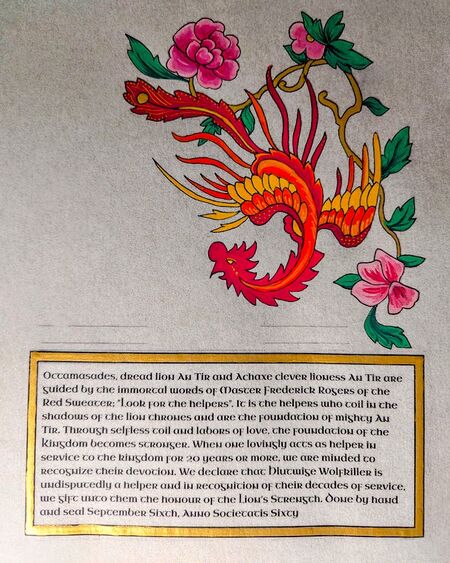 Octamasades, dread lion An Tir and Achaxe clever lioness An Tir are
guided by the immortal words of Master Frederick Rogers of the
Red Sweater; "Look for the helpers". It is the helpers who toil in the
shadows of the lion thrones and are the foundation of mighty An
Tir. Through selfless toil and labors of love, the foundation of the
Kingdom becomes stronger. When one lovingly acts as helper in
service to the kingdom for 20 years or more, we are minded to
recognize their devotion. We declare that Hlutwige Wolfkiller is
undisputedly a helper and in recognition of their decades of service,
we gift unto them the honour of the Lion's Strength. Done by hand
and seal September Sixth, Anno Societatis Sixty